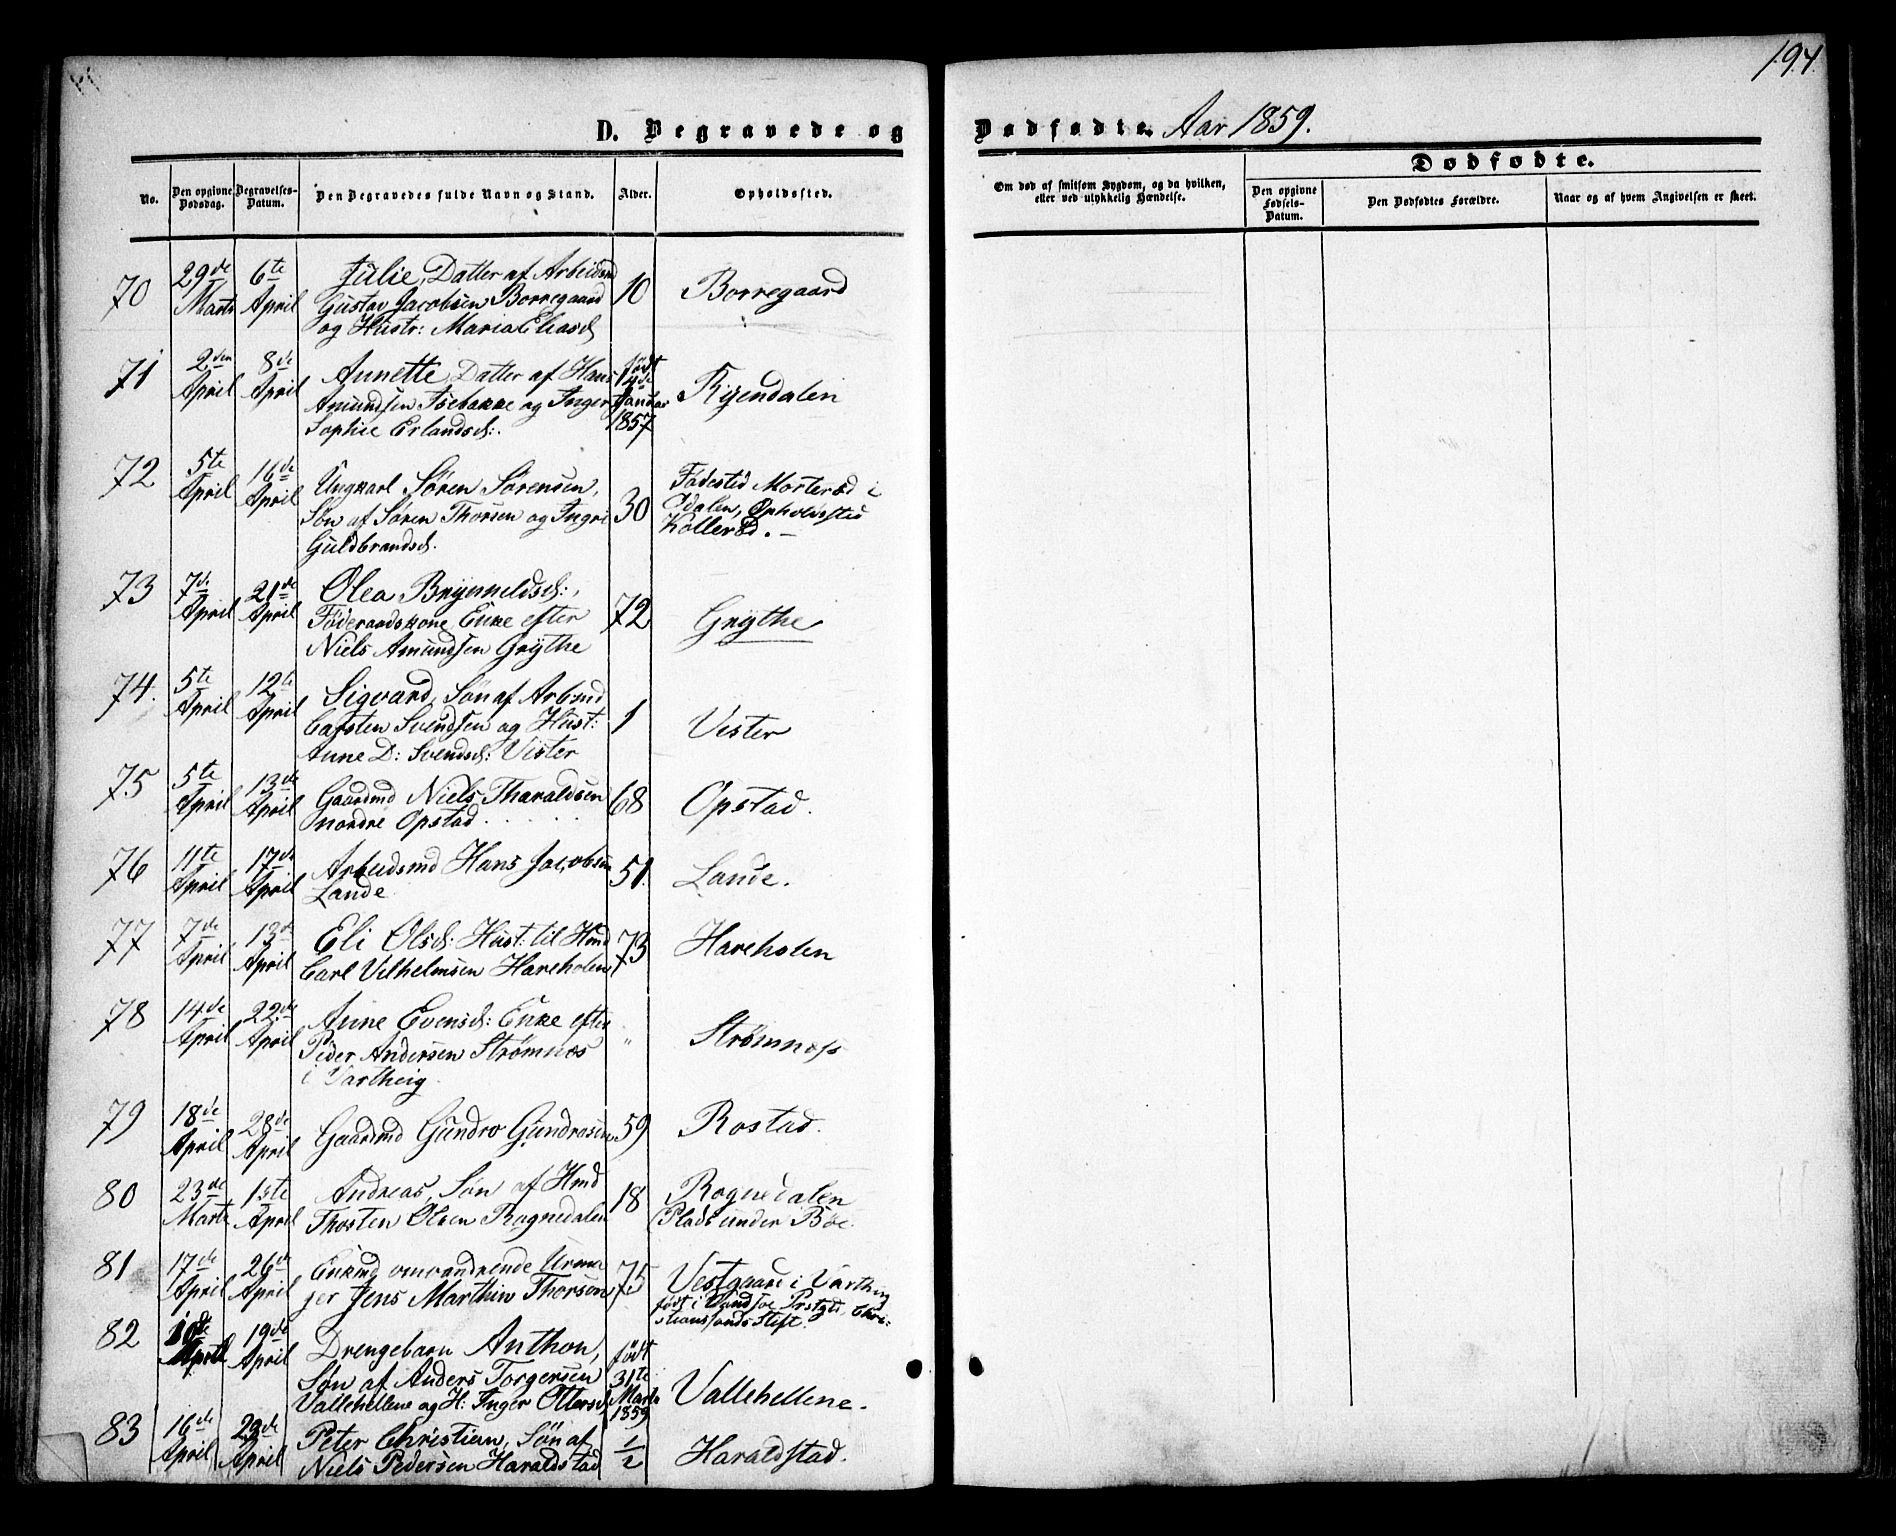 194.
D. Begravede og Dødfødte. Aar 1859.
No.
Den opgivne Dødsdag.
Begravelses-Datum.
Den Begravedes fulde Navn og Stand.
Alder.
Opholdssted.
Om død af smitsom Sygdom, og da hvilken, eller ved ulykkelig Hændelse.
Dødfødte.
Den opgivne Fødsels-Datum.
Den Dødfødtes Forældre.
Naar og af hvem Angivelsen er skeet.
70 29de Marts 6te April Julie, Datter af Arbeidsmd 10 Borregaard
Gustav Jacobsen Borregaard
og Hustr: Maria Eliasd
71 2den April 8de April Annette, Datter af Hans født 14de Januar 1857 Ryendalen
Amundsen Isebakke og Inger
Sophie Erlandsd:.
72 5te April 16de April Ungkarl Søren Sørensen, 30 Fødested Morterød i
Søn af Søren Thorsen og Ingri Idalen, Opholdssted
Guldbrandsd. Kollerød. –
73 7de April 21de April Olea Brynnildsd:, 72 Grythe
Føderaadskone, Enke efter
Niels Amundsen Grythe
74. 5te April 12te April Sigvard, Søn af Arb:md 1 Vister
Carsten Svendsen og Hust:
Anne D: Svendsd: Vister
75 5te April 13de April Gaardmd Niels Tharaldsen 68 Opstad.
nordre Opstad
76 11te April 17de April Arbeidsmd Hans Jacobsen 51. Lande.
Lande
77 7de April 13de April Eli Olsd: Hust: til Hmd 73 Hareholen
Carl Vilhelmsen Hareholen
78 14de April 22de April Anne Evensd: Enke efter " Strømnæss
Peder Andersen Strømnæs
i Vartheig.
79 18de April 28de April Gaardmd Gundro Gundrosen 59 Rostad.
80 23de Marts 1ste April Andreas, Søn af Hmd 18 Rognedalen
Thosten Olsen Rognedalen Plads under Bøe.
81 17de April 26de April Enkmd omvandrende Urma 75 Vestgaard i Varthieg
ger Jens Marthin Thorsen født i Prstgd, Chri:
stianssands Stift.
82 10de April 19de April Drengebarn Anthon, født 31te Marts 1859 Vallehellene.
Søn af Anders Torgersen
Vallehellene og H: Inger Ottersd
83 16de April 23de April Peter Christian, Søn af 1/2 Haraldstad.
Niels Pedersen Haraldstad